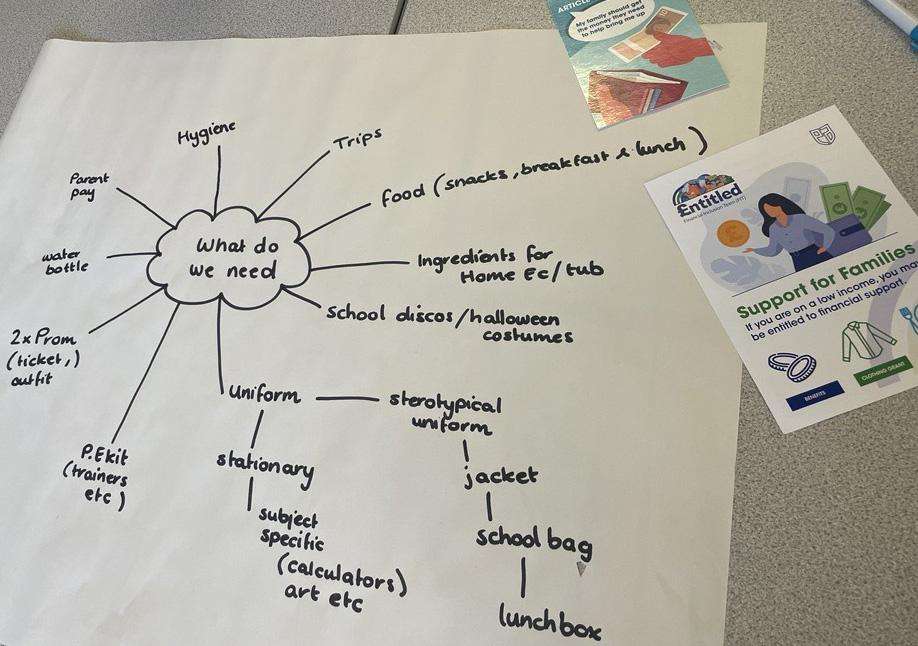 ARTICLE
My family should get
the money they need
to help bring me up
Hygiene
Trips
Parent
pay
food (snacks, breakfast & lunch)
What do
we need
water
bottle
Ingredients for
Home Ec/tub
School discos/halloween
costumes
2x Prom
(ticket,)
outfit
uniform
sterotypical
uniform
P.E kit
(trainers
etc)
stationary
jacket
subject
specific
(calculators)
art etc
school bag
lunchbox
£ntitled
Financial Inclusion Team (FIT)
Support for Families
If you are on a low income, you may
be entitled to financial support.
BENEFITS
CLOTHING GRANT